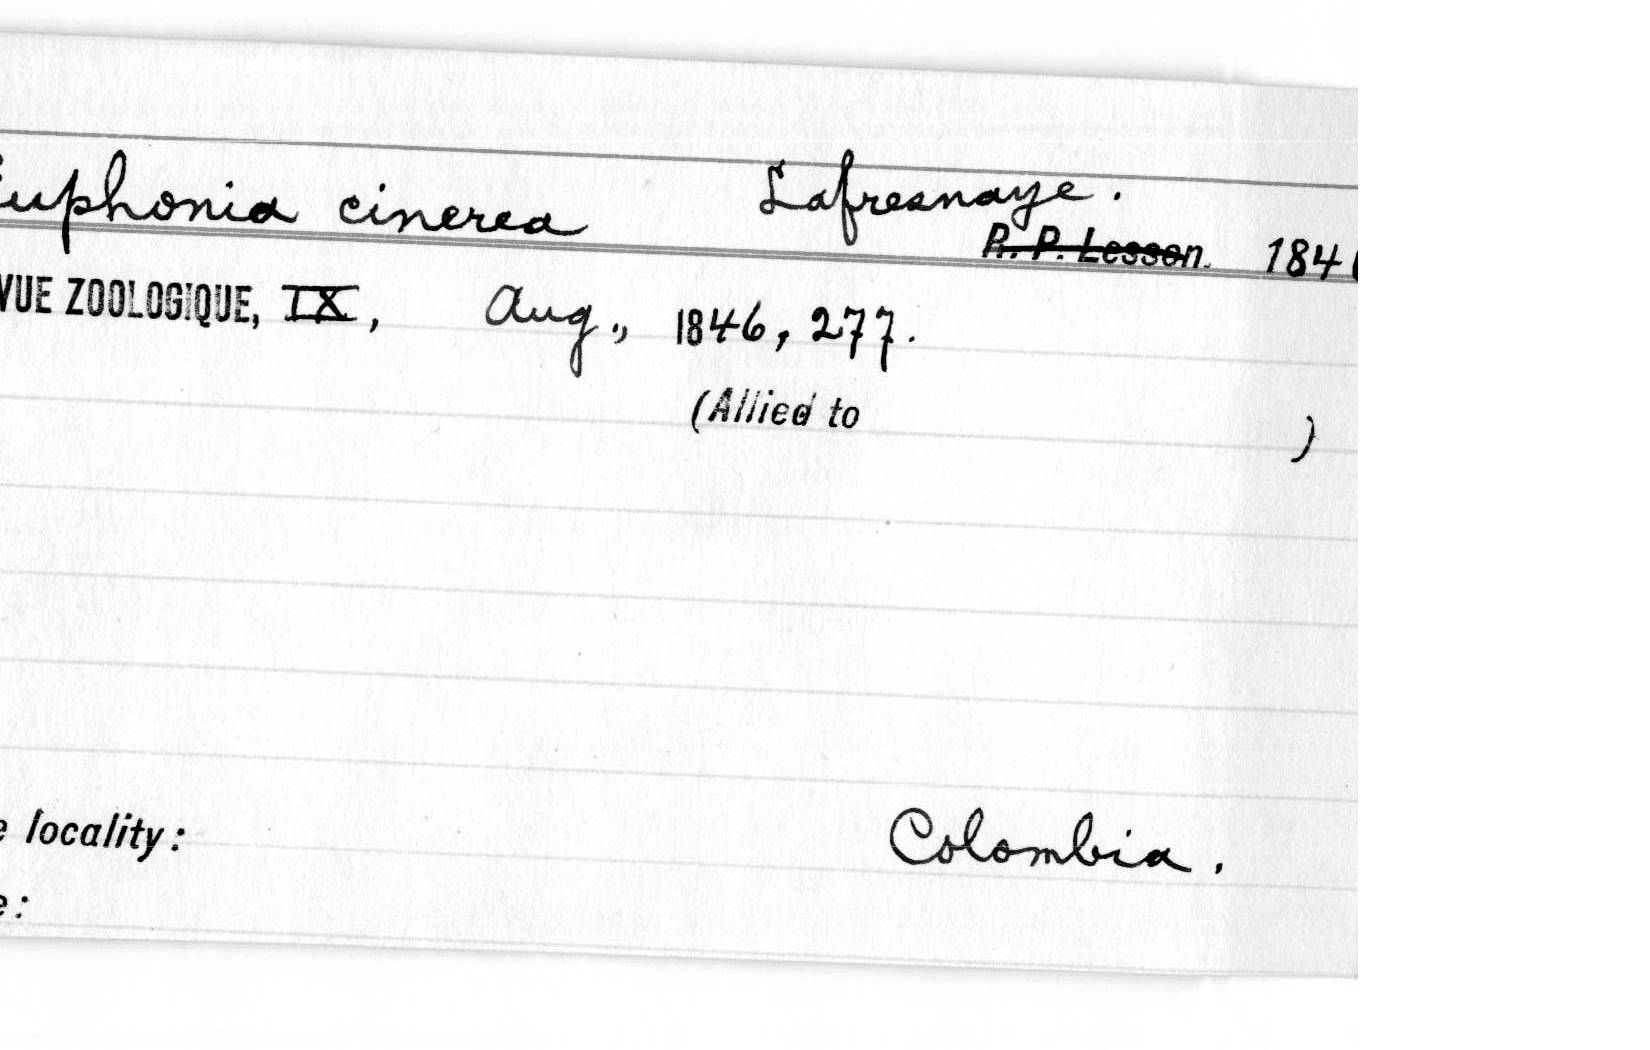 Euphonia cinerea Lafresnaye.
R. P. Lesson. 184
VUE ZOOLOGIQUE, IX, Aug., 1846, 277.
(Allied to )
e locality: Colombia.
e: